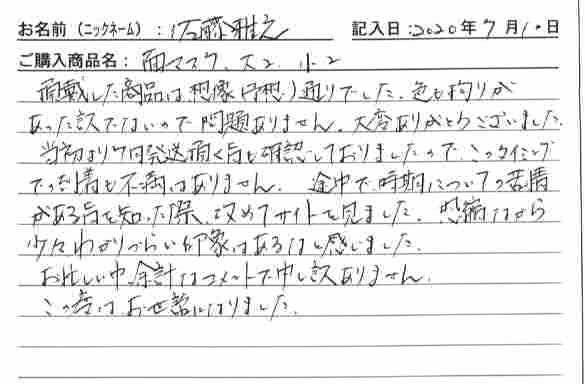 お名前（ニックネーム）：佐藤雅之 記入日：2020年7月10日
ご購入商品名：面マスク、大2、小2
頂戴した商品は想像（予想）通りでした。色も拘りが
あった訳ではないので問題ありません。大変ありがとうございました。
当初より7月発送頂く旨も確認しておりましたので、このタイミング
での到着も不満はありません。途中で、時期についての苦情
がある旨を知った際、改めてサイトを見ました。恐縮ながら
少々わかりづらい印象はあるなと感じました。
お忙しい中、余計なコメントで申し訳ありません。
この度はお世話になりました。